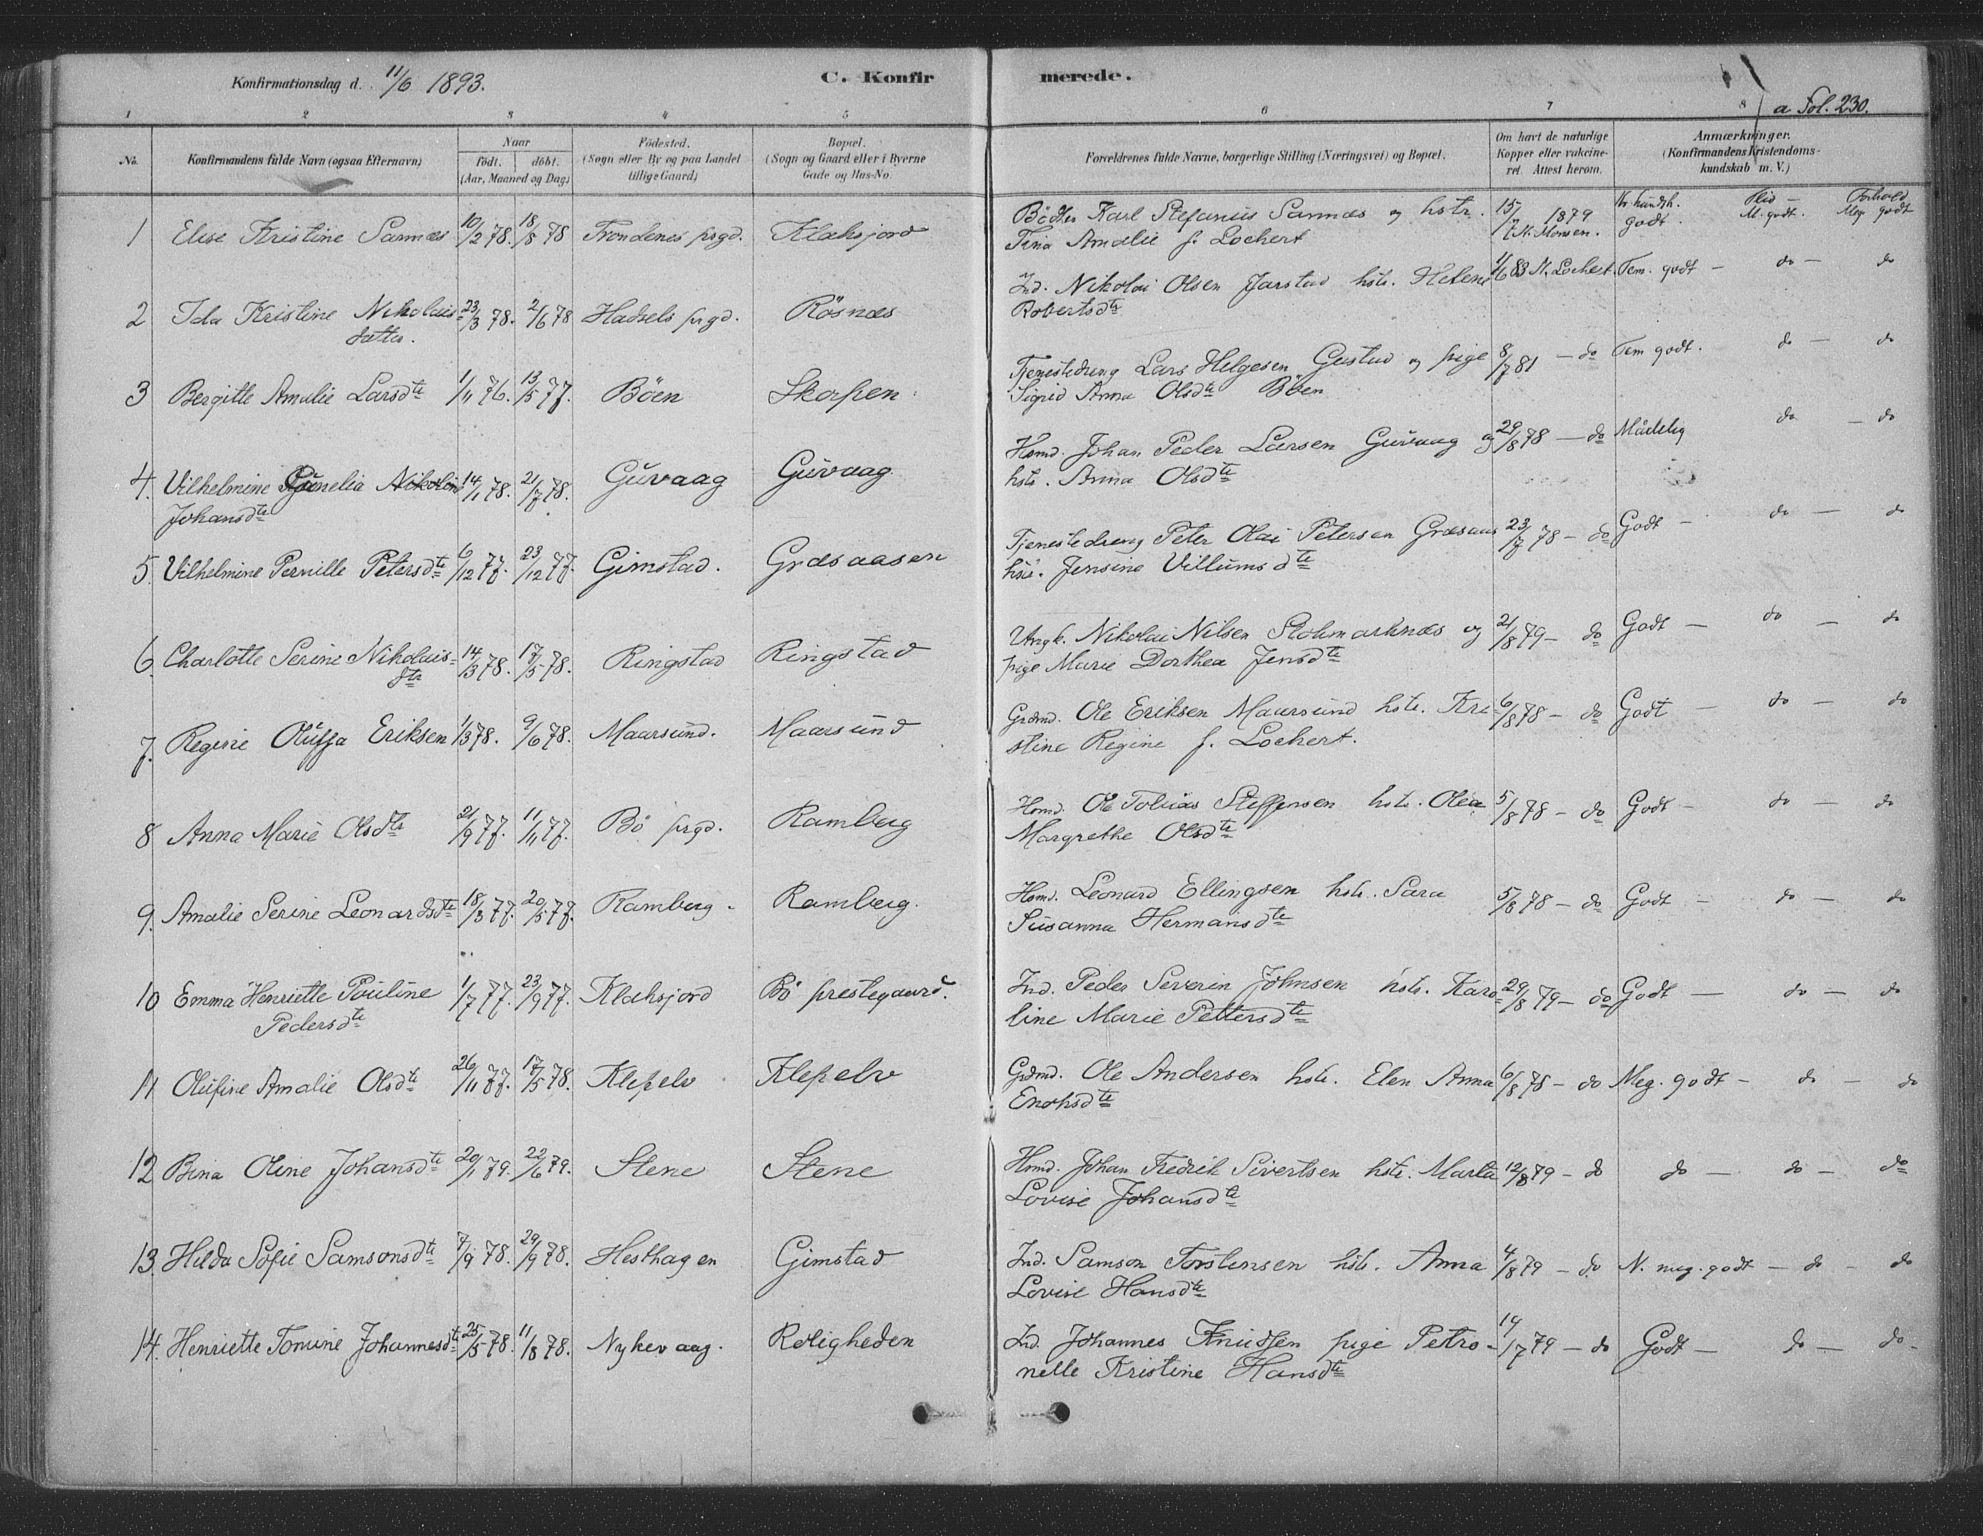 Konfirmationsdag d. 11/6 1893.
C. Konfir
merede.
a Fol. 230.
1 2 3 4 5 6 7 8
No.
Konfirmandens fulde Navn (ogsaa Efternavn)
Naar
født. døbt.
(Aar, Maaned og Dag)
Fødested.
(Sogn eller By og paa Landet
tillige Gaard)
Bopæl.
(Sogn og Gaard eller i Byerne
Gade og Hus-No.
Forældrenes fulde Navne, borgerlige Stilling (Næringsvei) og Bopæl.
Om havt de naturlige
Kopper eller vakcine-
ret. Attest herom.
Anmærkninger.
(Konfirmandens Kristendoms-
kundskab m. V.)
Kr. kundsk. Flid — Forhold
1 Elise Kristine Sannes 10/2 78. 18/8 78 Trondenes prgd. Klaksjord
Bødker Karl Stefanius Sannes og hstr. 15/7 1879 godt. M. godt. Meg godt
Tina Amalie f. Lochert N. Monsen.
2 Ida Kristine Nikolais- 23/3 78. 2/6 78 Hadsels prgd. Rösnes
datter.
Ind. Nikolai Olsen Jarstad hstr. Helene 4/6 83 N. Lochert. Tem. godt — do — do
Robertsdtr
3 Bergitte Amalie Larsdtr 1/11 76. 13/5 77. Böen Skarpen
Tjenestedreng Lars Helgesen Gustad og pige 8/7 81 — do Tem godt. do — do
Sigrid Anna Olsdtr Böen
4. Vilhelmine Cornelia Nikoline 14/1 78. 21/7 78. Guvaag Guvaag.
Johansdtr
Hsmd. Johan Peder Larsen Guvaag og 29/8 78 — do Mådelig do — do
hstr. Anna Olsdtr
5. Vilhelmine Pernille Petersdtr 6/12 77. 23/12 77. Gimstad. Græsaasen
Tjenestedreng Peter Olai Petersen Græsaas 23/7 78 — do Godt — do — do
hstr. Jensine Villumsdtr
6. Charlotte Serine Nikolais- 14/3 78. 17/5 78. Ringstad Ringstad
dtr
Ungk. Nikolai Nilsen Stokmarknæs og 21/8 79 — do Godt — do — do
pige Marie Dorthea Jensdtr
7. Regine Oluffa Eriksen 1/3 78. 9/6 78. Maarsund. Maarsund
Grdmd. Ole Eriksen Maarsund hstr. Kri- 6/8 78 — do Godt — do — do
stine Regine f. Lochert.
8 Anna Marie Olsdtr 21/9 77. 11/11 77. Bö prgd. Ramberg
Hsmd. Ole Tobias Steffensen hstr. Olea 5/8 78 — do Godt — do — do
Margrethe Olsdtr
9. Amalie Serine Leonardsdtr 18/3 77. 20/5 77. Ramberg. Ramberg.
Hsmd. Leonard Ellingsen hstr. Sara 5/8 78 — do Godt — do — do
Susanna Hermansdtr
10 Emma Henriette Pouline 1/7 77. 23/9 77. Klaksjord Bö prestegaard.
Pedersdtr
Ind. Peder Severin Johnsen hstr. Karo- 29/8 79 — do Godt — do — do
line Marie Pettersdtr
11 Olufine Amalie Olsdtr 26/11 77. 17/5 78. Klepelv Klepelv
Grdmd. Ole Andersen hstr. Elen Anna 6/8 78 — do Meg. godt — do — do
Enoksdtr
12 Bina Oline Johansdtr 20/1 79. 22/6 79. Stene Stene
Hsmd. Johan Fredrik Sivertsen hstr. Marta 12/8 79 — do do — do — do
Lovise Johansdtr
13. Hilda Sofie Samsonsdtr 7/9 78. 29/9 78. Hesthagen Gimstad
Ind. Samson Torstensen hstr. Anna 4/8 79 — do. N. meg. godt — do — do
Lovise Hansdtr
14. Henriette Tomine Johannesdtr 25/5 78. 11/8 78. Nykevaag. Roligheden
Ind. Johannes Knudsen pige Petro- 19/7 79 — do Godt — do — do
nelle Kristine Hansdtr